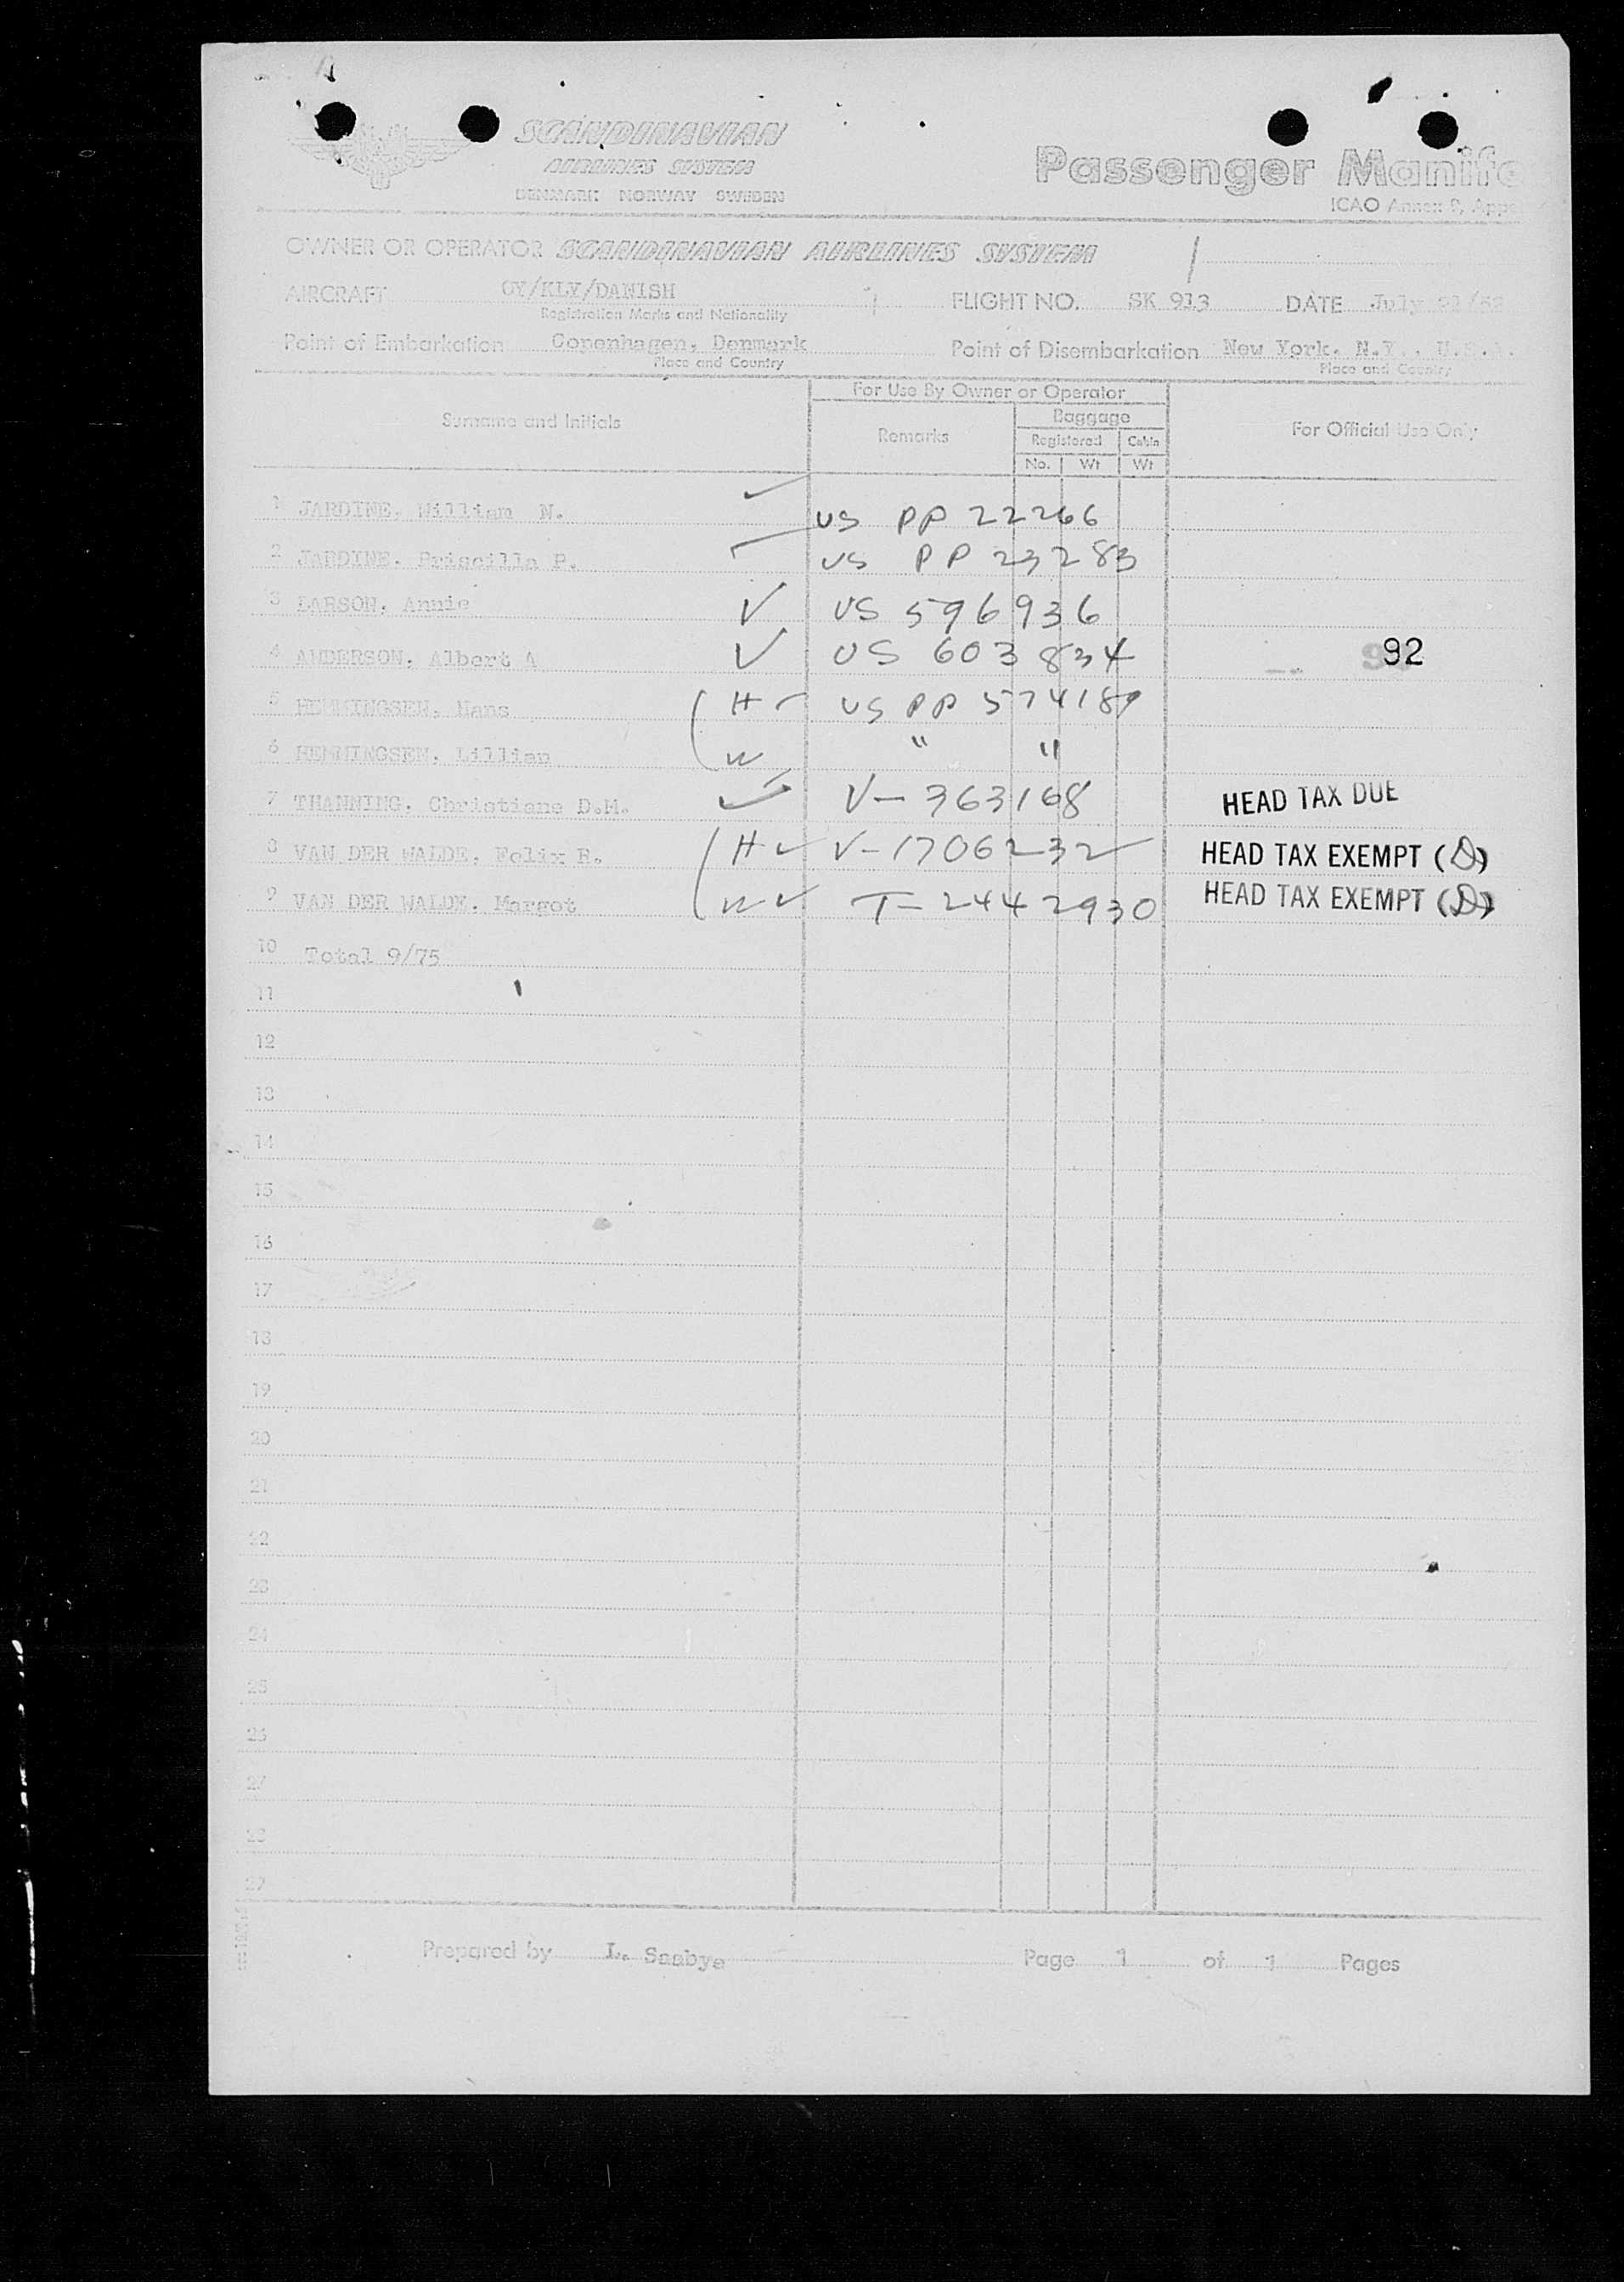 SCANDINAVIAN
AIRLINES SYSTEM
DENMARK NORWAY SWEDEN
Passenger Manife
ICAO Annex 9, Appe
OWNER OR OPERATOR SCANDINAVIAN AIRLINES SYSTEM
AIRCRAFT OY/KLY/DANISH FLIGHT NO. SK 913 DATE July
Registration Marks and Nationality
Point of Embarkation Copenhagen, Denmark Point of Disembarkation New York, N.Y., U.S.A.
Place and Country Place and Country
For Use By Owner or Operator
Surname and Initials Remarks Baggage For Official Use Only
Registered Cabin
No. Wt Wt
1 JARDINE, William N. US PP 22266
2 JARDINE, Priscilla P. US PP 23283
3 LARSON, Annie V US 596936
4 ANDERSON, Albert A V US 603834 92
5 HEMMINGSEN, Hans H US PP 574189
6 HEMMINGSEN, Lillian W " "
7 THANNING, Christiane D.M. V-363168 HEAD TAX DUE
8 VAN DER WALDE, Felix R. H V-1706232 HEAD TAX EXEMPT (D)
9 VAN DER WALDE, Margot W T-2442930 HEAD TAX EXEMPT (D)
10 Total 9/75
11
12
13
14
15
16
17
18
19
20
21
22
23
24
25
26
27
28
29
Prepared by L. Saabye Page 1 of 1 Pages